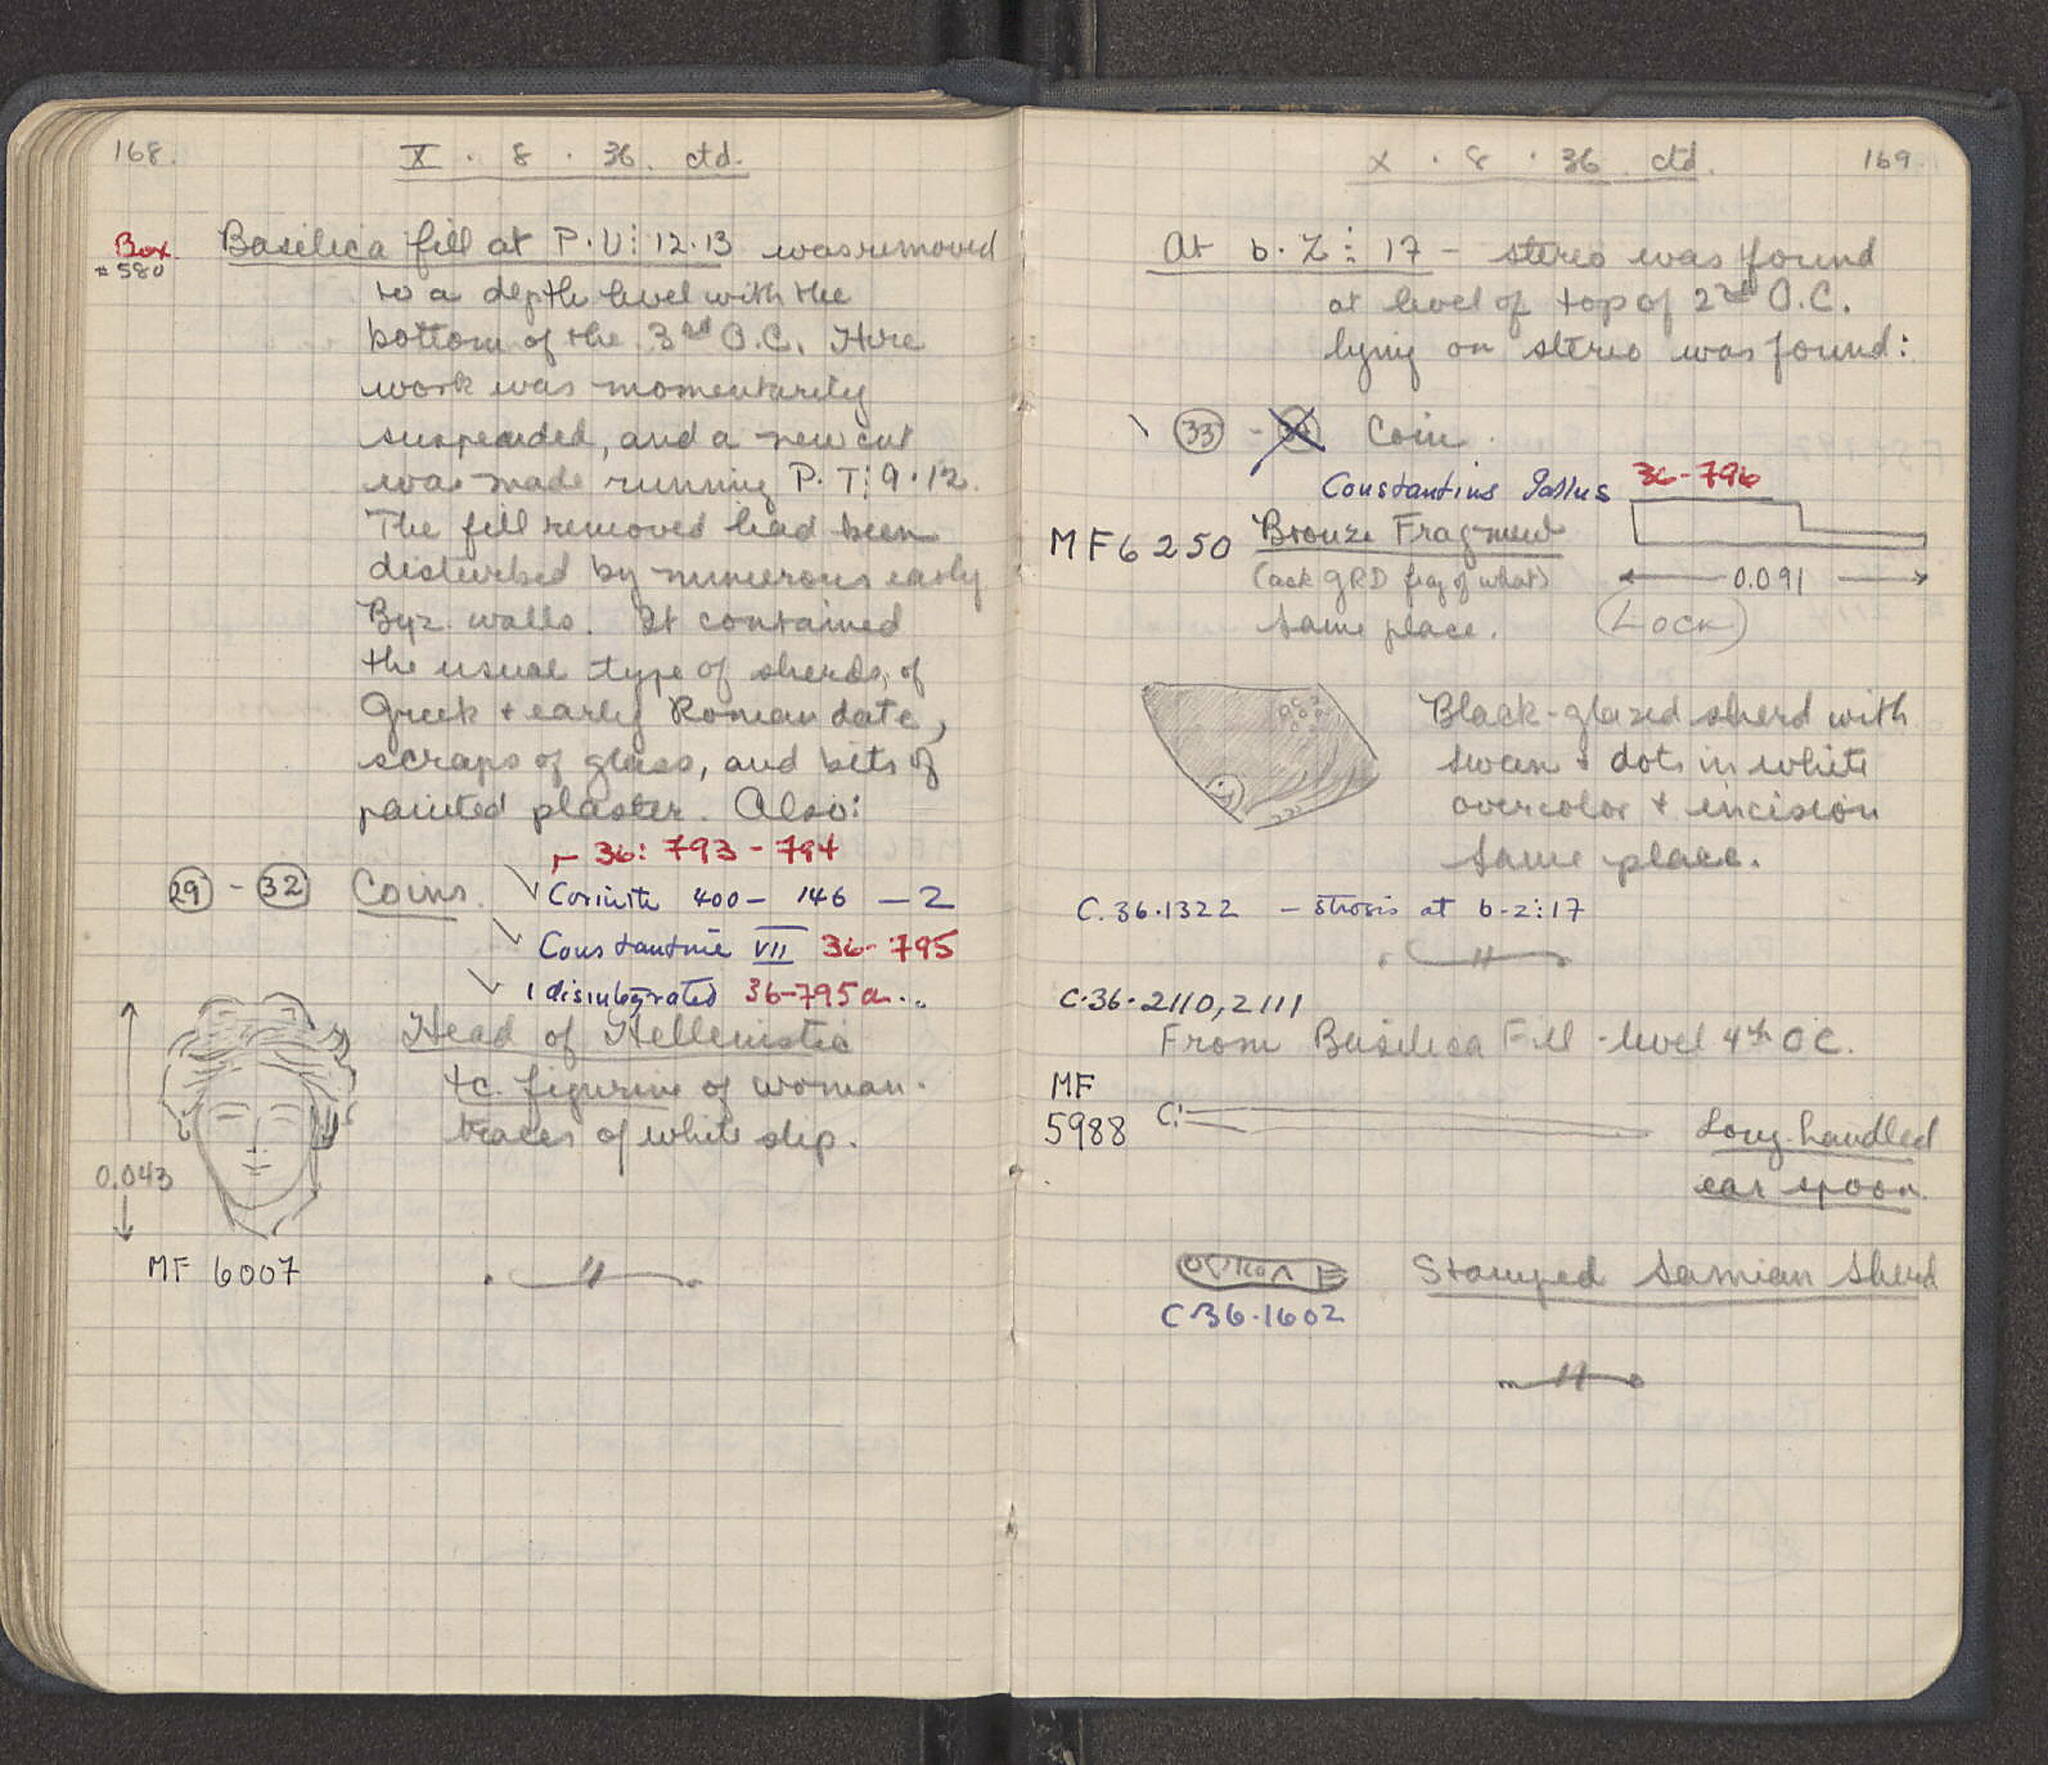 168.
X . 8 . 36. ctd.
Box
#580
Basilica fill at P.U⋮12.13 was removed
to a depth level with the
bottom of the 3rd O.C. Here
work was momentarily
suspended, and a new cut
was made running P.T⋮9.12.
The fill removed had been
disturbed by numerous early
Byz. walls. It contained
the usual type of sherds, of
Greek + early Roman date,
scraps of glass, and bits of
painted plaster. Also:
36: 793 - 794
29 - 32 Coins. Corinth 400 - 146 - 2
Constantine VII 36-795
1 disintegrated 36-795a
Head of Hellenistic
tc. figurine of woman.
traces of white slip.
0.043
MF 6007
X . 8 . 36 ctd. 169
At b.Z⋮17 - stereo was found
at level of top of 2nd O.C.
lying on stereo was found:
33 - Coin.
Constantius Gallus 36-796
MF6250 Bronze Fragment
(ask GRD frag of what)
0.091
same place. (LOCK)
Black-glazed sherd with
swan & dots in white
overcolor + incision
same place.
C.36.1322 - strosis at b-z:17
C.36.2110, 2111
From Basilica Fill - level 4th OC.
MF
5988
Long-handled
ear spoon.
Stamped Samian Sherd
C.36.1602